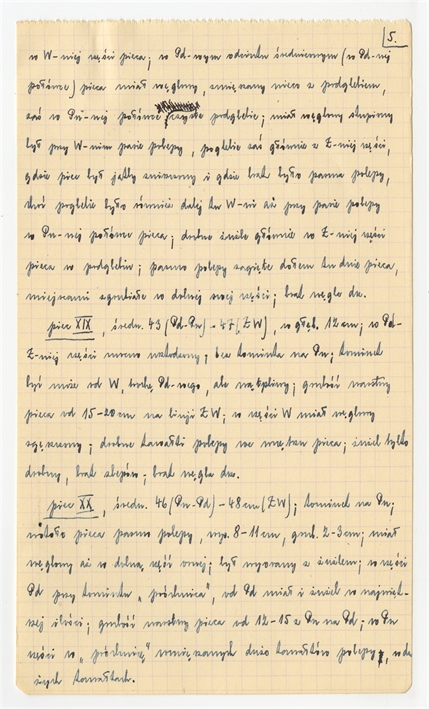 5.
w W-niej części pieca; w Pd-wym odcinku średniowym (w Pd-nej
połówce) pieca miał węglowy, zmieszany nieco z podglebiem,
zaś w Pn-nej połówce czyste podglebie; miał węglowy skupiony
był przy W-nim pasie polepy, poglebie zaś głównie w Z-niej części,
gdzie piec był jakby zniszczony i gdzie brak było pasma polepy,
choć poglebie było również dalej ku W-ni aż przy pasie polepy
w Pn-nej połówce pieca; drobne żużle głównie w Z-niej części
pieca w podglebiu; pasmo polepy zagięte dołem ku dnie pieca,
miejscami zgrubiałe w dolnej swej części; brak węgla drz.
piec XIX, średn. 43 (Pd-Pn) - 47 (ZW), w głęb. 12 cm; w Pd-
Z-niej części mocno uszkodzony; bez kominka na Pn; kominek
być może od W, trochę Pd-nego, ale wątpliwy; grubość warstwy
pieca od 15-20 cm na linji ZW; w części W miał węglowy
zgęszczony; drobne kawałki polepy we wnętrzu pieca; żużel tylko
drobny, brak zlepów; brak węgla drz.
piec XX, średn. 46 (Pn-Pd) - 48 cm (ZW); kominek na Pn;
wokoło pieca pasmo polepy, wys. 8-11 cm, grub. 2-3 cm; miał
węglowy aż w dolną część; był wymieszany z żużlem; w części
Pd przy kominku „próchnica”, od Pd miał i żużel w najwięk-
szej ilości; grubość warstwy pieca od 12-15 z Pn na Pd; w Pn
części w „próchnicę” wmieszanych dużo kawałków polepy, w du-
żych kawałkach.